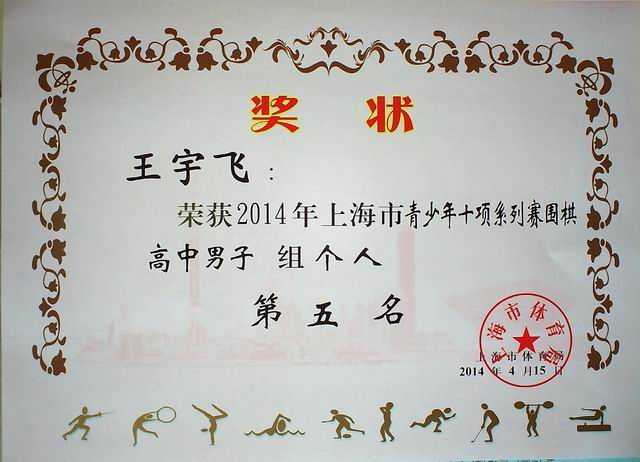 奖 状
王宇飞：
荣获2014年上海市青少年十项系列赛围棋
高中男子 组个人
第五名
上海市体育局
上海市体育局
2014 年 4 月 15 日